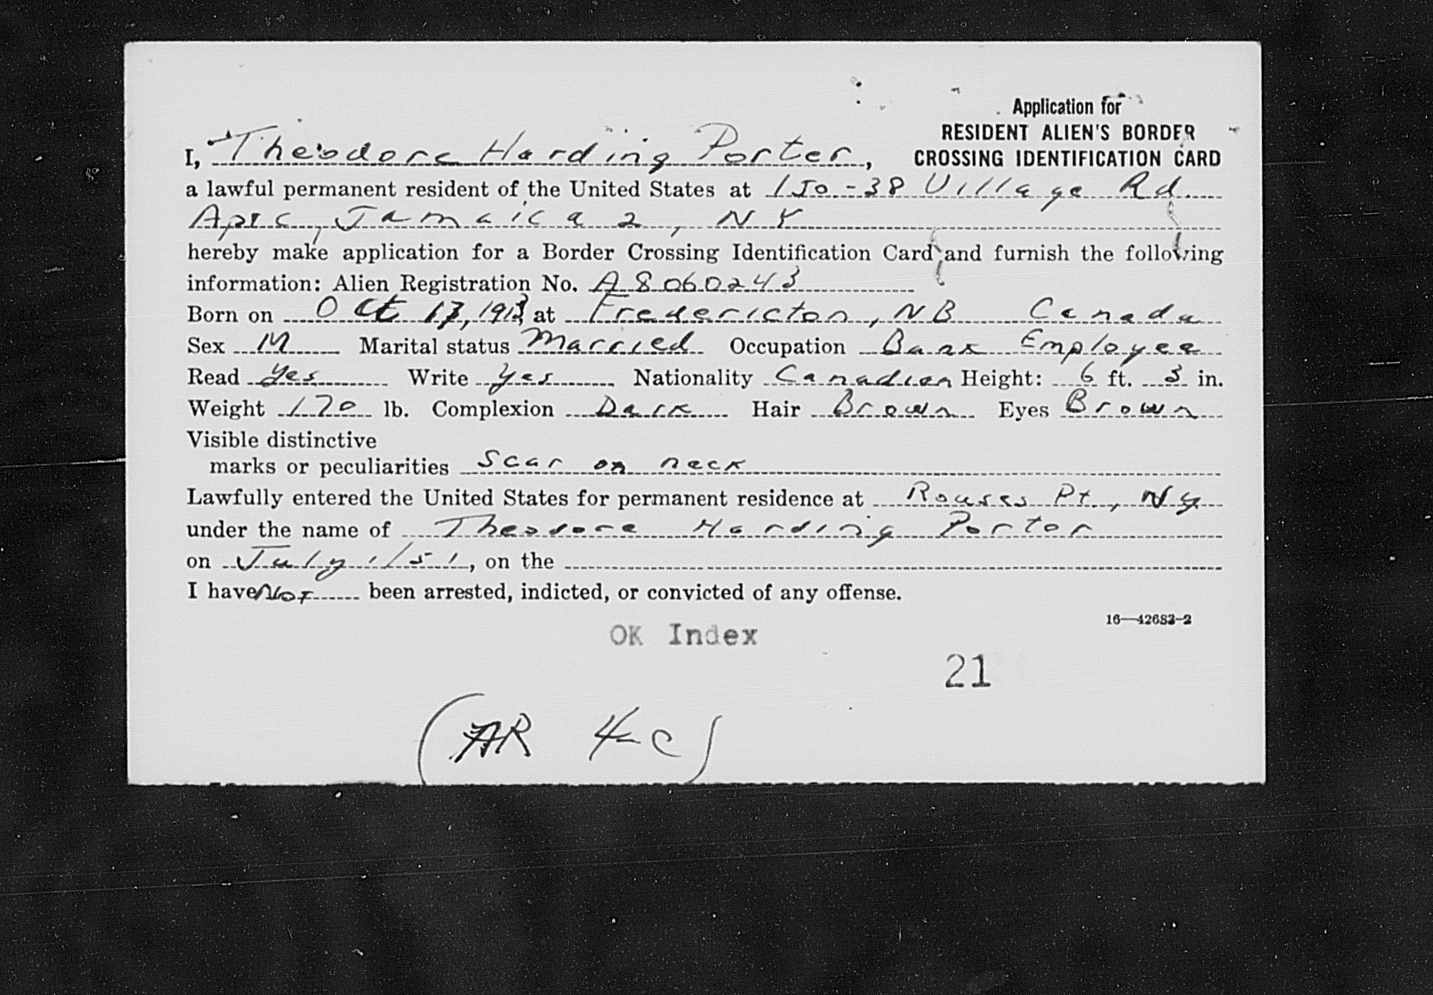 Application for
RESIDENT ALIEN'S BORDER
CROSSING IDENTIFICATION CARD
I, Theodore Harding Porter,
a lawful permanent resident of the United States at 150-38 Village Rd
Jamaica 2, NY
hereby make application for a Border Crossing Identification Card and furnish the following
information: Alien Registration No. A8060243
Born on Oct 17, 1913 at Fredericton, NB Canada
Sex M Marital status Married Occupation Bank Employee
Read Yes Write Yes Nationality Canadian Height: 6 ft. 3 in.
Weight 170 lb. Complexion Dark Hair Brown Eyes Brown
Visible distinctive
marks or peculiarities Scar on neck
Lawfully entered the United States for permanent residence at Rouses Pt., NY
under the name of Theodore Harding Porter
on July 1/51, on the
I have Not been arrested, indicted, or convicted of any offense.
16—42683-2
OK Index
21
(AR 4-C)